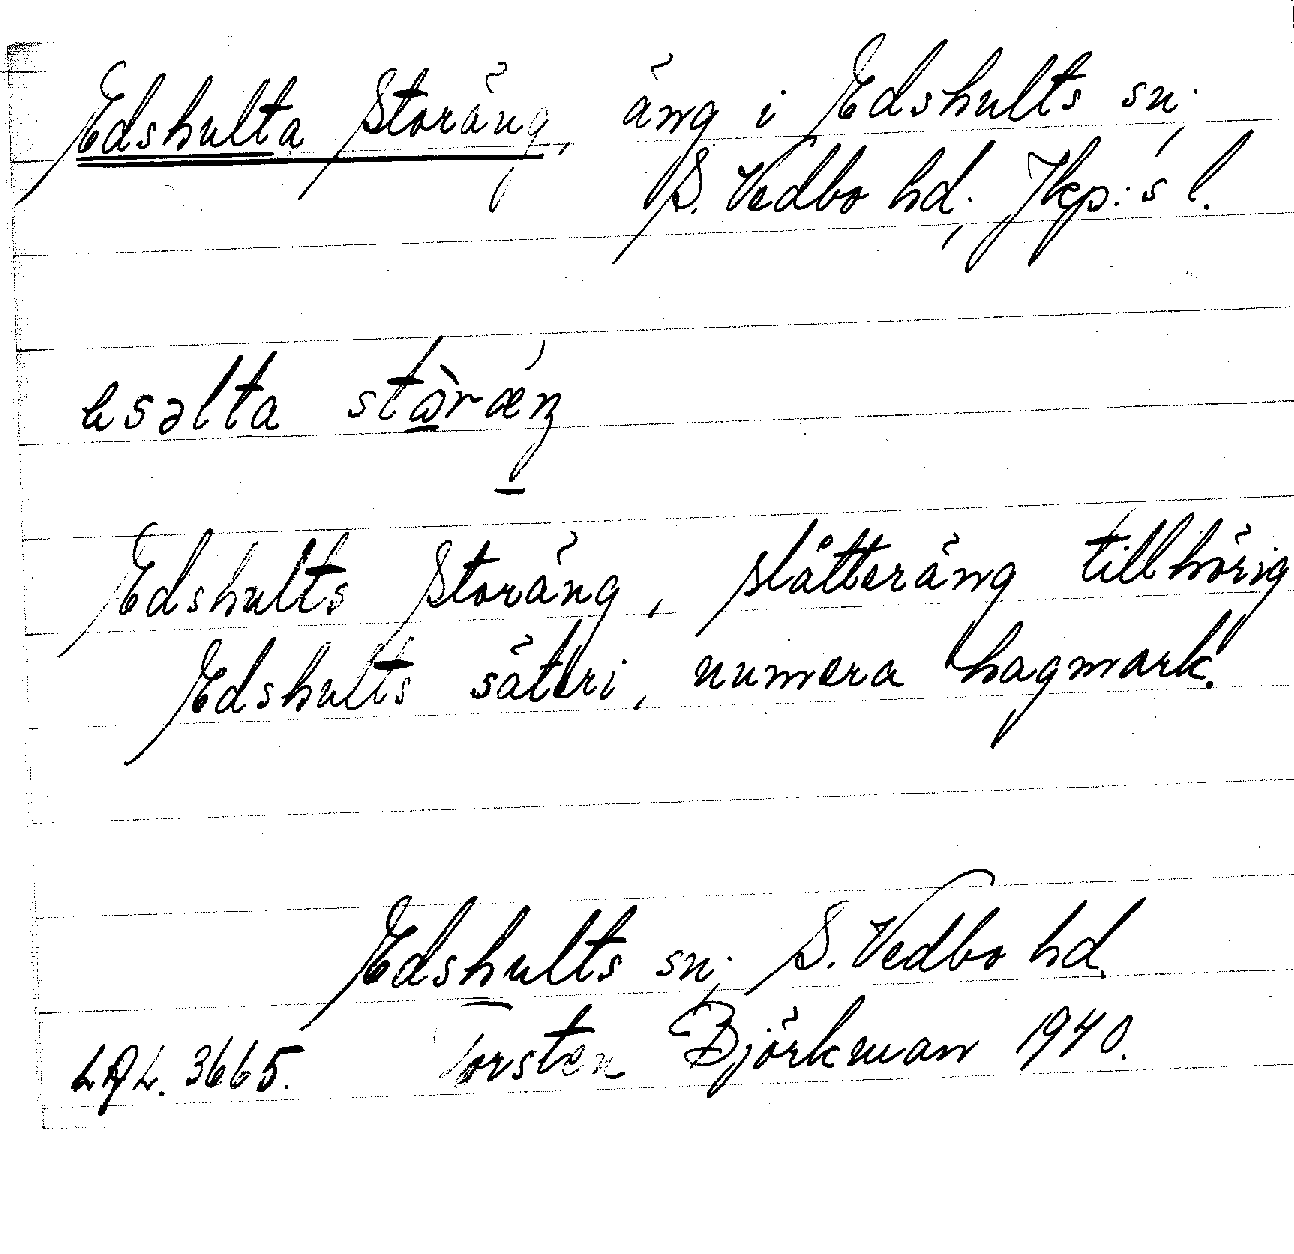 Edshulta Storäng, äng i Edshults sn;
S. Vedbo hd; Jkp:s l.
esəlta
Edshults Storäng, slåtteräng tillhörig
Edshults säteri, numera hagmark.
Edshults sn; S. Vedbo hd.
3665. Torsten Björkman 1940.